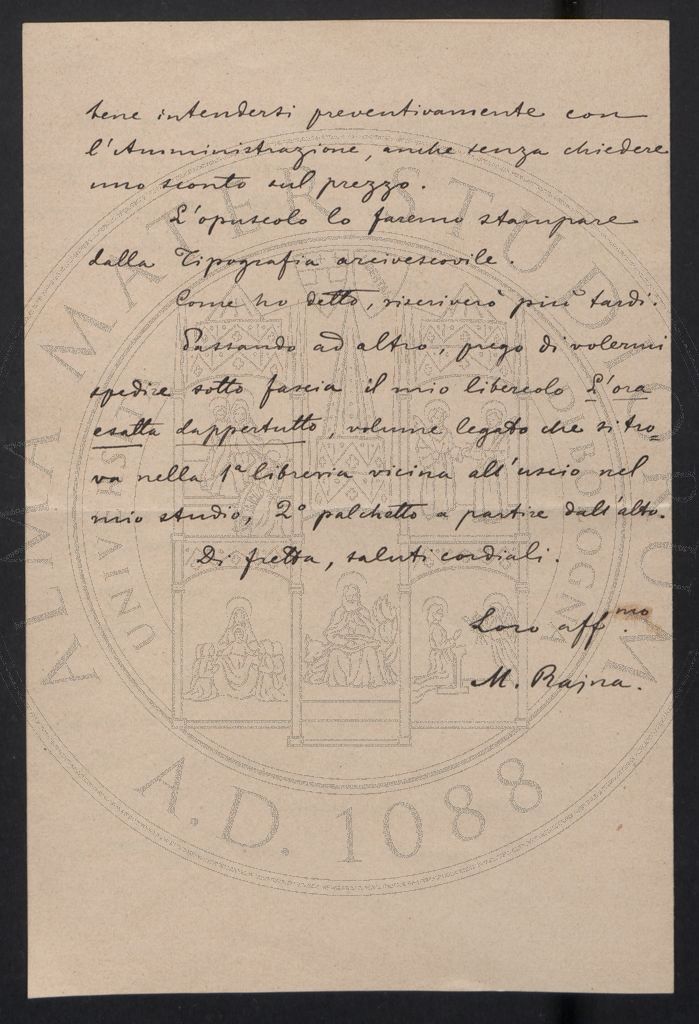 bene intendersi preventivamente con
l'Amministrazione, anche senza chiedere
uno sconto sul prezzo.
L'opuscolo lo faremo stampare
dalla Tipografia arcivescovile.
Come ho detto, riscriverò più tardi.
Passando ad altro, prego di volermi
spedire sotto fascia il mio libercolo L'ora
esatta dappertutto, volume legato che si tro-
va nella 1ª libreria vicina all'uscio nel
mio studio, 2º palchetto a partire dall'alto.
Di fretta, saluti cordiali.
Loro aff.mo
M. Rajna.
ALMA MATER STUDIORUM
A.D. 1088